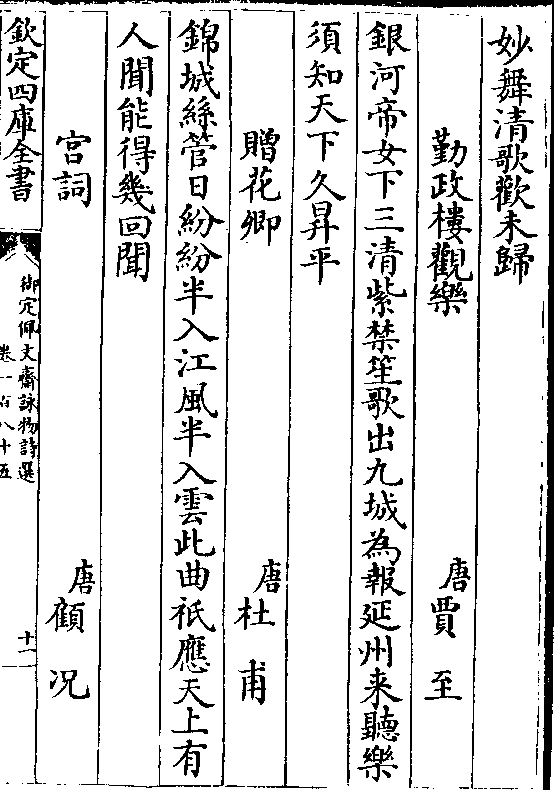 妙舞清歌歡未歸
勤政樓觀樂 唐賈至
銀河帝女下三清紫禁笙歌出九城為報延州来聽樂
須知天下久昇平
贈花卿 唐杜甫
錦城絲管日紛紛半入江風半入雲此曲祇應天上有
人間能得幾回聞
宫詞 唐顧况
欽定四庫全書
御定佩文齋詠物詩選
卷一百八十五
十一